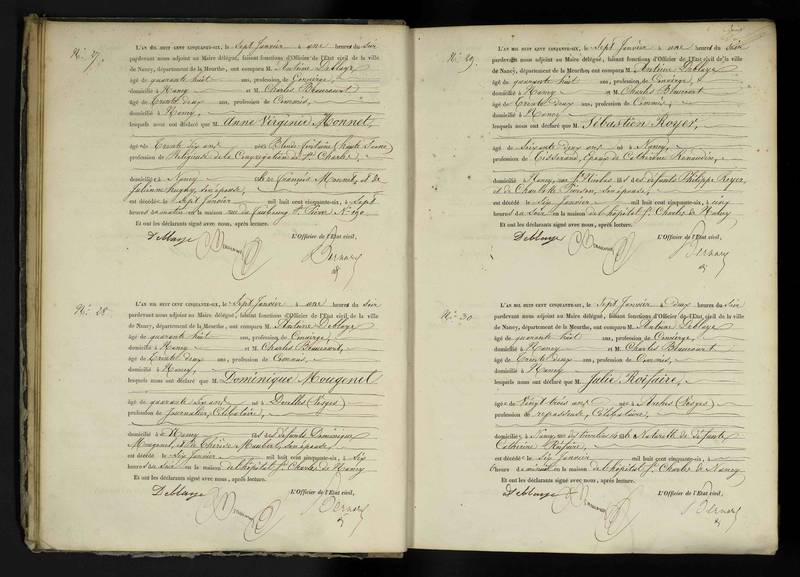 No. 27.
L'AN MIL HUIT CENT CINQUANTE-SIX, le Sept Janvier à une heures du Soir
pardevant nous adjoint au Maire délégué, faisant fonctions d'Officier de l'Etat civil de la ville
de Nancy, département de la Meurthe, ont comparu M. Antoine Deblaye
âgé de quarante huit ans, profession de Concierge,
domicilié à Nancy et M. Charles Beaucourt
âgé de trente deux ans, profession de Commis,
domicilié à Nancy,
lesquels nous ont déclaré que M. Anne Virginie Monnet,
âgée de trente six ans née à Blaise fontaine (haute Saône)
profession de Religieuse de la Congrégation de St. Charles,
domiciliée à Nancy
est décédée le Sept Janvier mil huit cent cinquante-six, à Sept
heures du matin en la maison rue du faubourg St. Pierre No. 190
Et ont les déclarants signé avec nous, après lecture.
Deblaye
L'Officier de l'Etat civil,
No. 28
L'AN MIL HUIT CENT CINQUANTE-SIX, le Sept Janvier à une heures du Soir
pardevant nous adjoint au Maire délégué, faisant fonctions d'Officier de l'Etat civil de la ville
de Nancy, département de la Meurthe, ont comparu M. Antoine Deblaye
âgé de quarante huit ans, profession de Concierge,
domicilié à Nancy et M. Charles Beaucourt
âgé de trente deux ans, profession de Commis,
domicilié à Nancy,
lesquels nous ont déclaré que M. Dominique Mougenel
âgé de quarante six ans né à Deuilles (Vosges)
profession de Journalier, Célibataire,
domicilié à Nancy est né des défunts Dominique
Mougenel, et de Thérèse Humbert, sans époux
est décédé le Six Janvier mil huit cent cinquante-six, à Six
heures du Soir en la maison de l'hôpital St. Charles de Nancy
Et ont les déclarants signé avec nous, après lecture.
Deblaye
L'Officier de l'Etat civil,
No. 29.
L'AN MIL HUIT CENT CINQUANTE-SIX, le Sept Janvier à une heures du Soir
pardevant nous adjoint au Maire délégué, faisant fonctions d'Officier de l'Etat civil de la ville
de Nancy, département de la Meurthe, ont comparu M. Antoine Deblaye
âgé de quarante huit ans, profession de Concierge,
domicilié à Nancy et M. Charles Beaucourt
âgé de trente deux ans, profession de Commis,
domicilié à Nancy,
lesquels nous ont déclaré que M. Sébastien Royer,
âgé de Soixante deux ans né à Nancy,
profession de Tisserand, époux de Catherine Renaudin,
domicilié à Nancy, est né des défunts Philippe Royer,
et de Charlotte
est décédé le Six Janvier mil huit cent cinquante-six, à cinq
heures du Soir en la maison de l'hôpital St. Charles de Nancy
Et ont les déclarants signé avec nous, après lecture.
Deblaye
L'Officier de l'Etat civil,
No. 30
L'AN MIL HUIT CENT CINQUANTE-SIX, le Sept Janvier à Deux heures du Soir
pardevant nous adjoint au Maire délégué, faisant fonctions d'Officier de l'Etat civil de la ville
de Nancy, département de la Meurthe, ont comparu M. Antoine Deblaye
âgé de quarante huit ans, profession de Concierge,
domicilié à Nancy et M. Charles Beaucourt
âgé de trente deux ans, profession de Commis,
domicilié à Nancy
lesquels nous ont déclaré que M. Julie Roifaire,
âgée de Vingt trois ans née à Arches (Vosges)
profession de repasseuse, Célibataire,
domiciliée à Nancy, est Naturelle de défunte
Catherine Roifaire,
est décédée le Six Janvier mil huit cent cinquante-six, à
heures en la maison de l'hôpital St. Charles de Nancy
Et ont les déclarants signé avec nous, après lecture.
Deblaye
L'Officier de l'Etat civil,